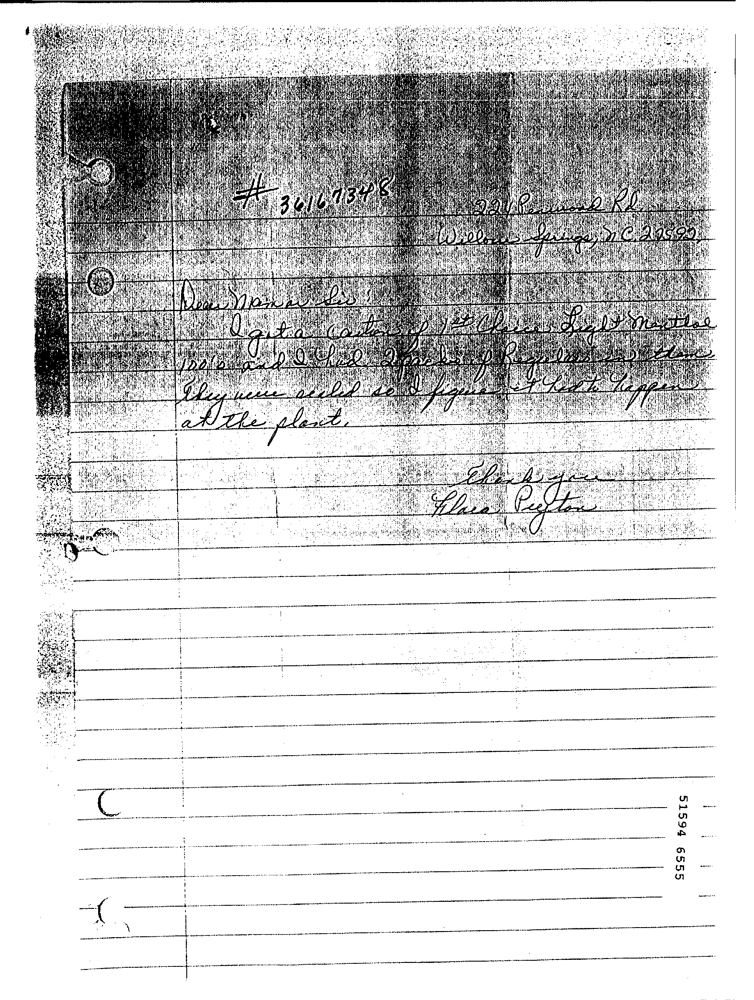 # 36167348
221 Rd
Willow Springs, N.C. 27592
Dear Mam or Sir!
I got a carton of 1st Choice Light Menthol
100's and I had 2 packs of Regulars in them
They were sealed so I figure it had to happen
at the plant.
Thank you
51594 6555